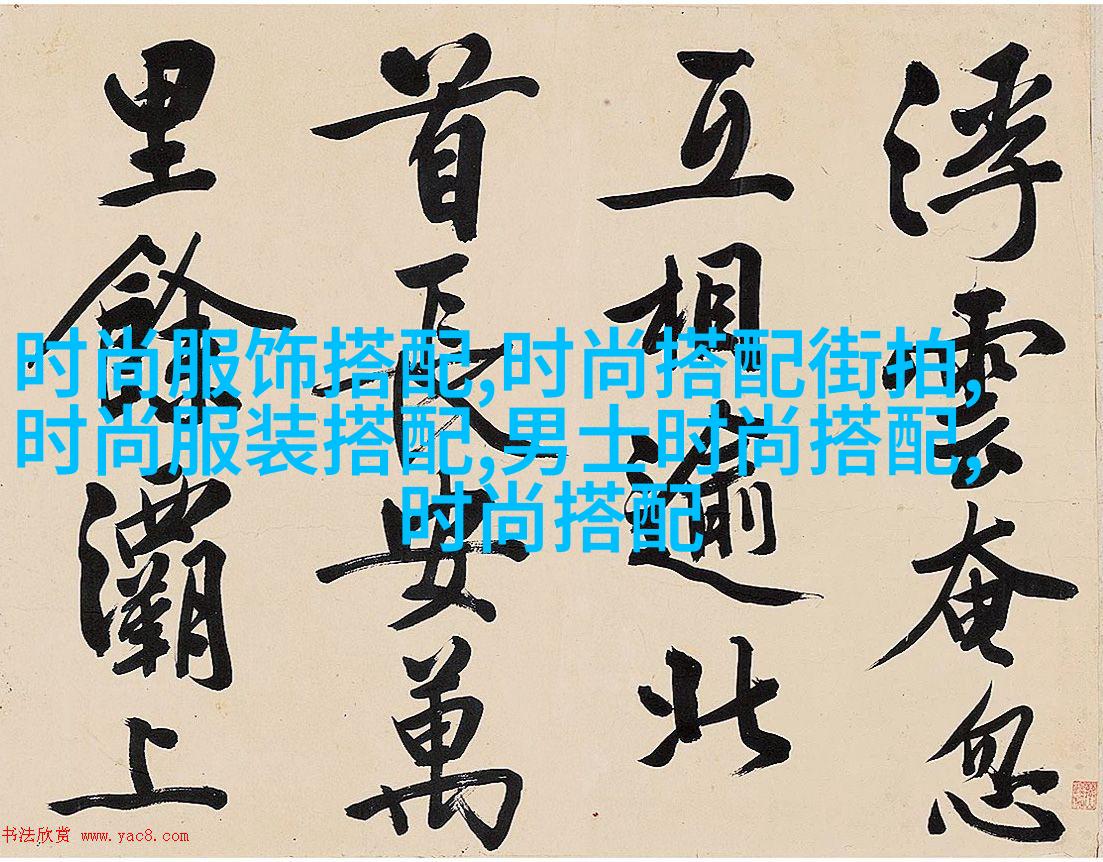 浮雲奄忽
互相逾北
首長安萬
里餘灞上
时尚服饰搭配,时尚搭配街拍,
时尚服装搭配,男士时尚搭配,
时尚搭配
书法欣赏 www.yac8.com